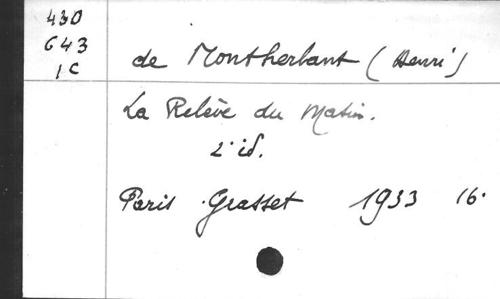 430
643
1C
de Montherlant (Henri)
La Relève du Matin.
2. id.
Paris Grasset 1933 16.